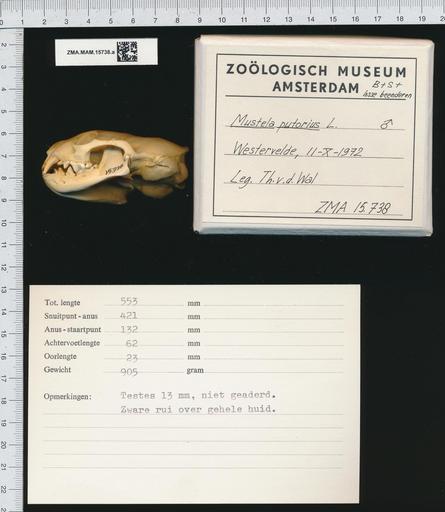 ZMA.MAM.15738.a
ZOÖLOGISCH MUSEUM
AMSTERDAM
B+S+
losse beenderen
Mustela putorius L. ♂
Westervelde, 11-X-1972
Leg. Th. v. d. Wal
ZMA 15.738
Tot. lengte 553 mm
Snuitpunt - anus 421 mm
Anus - staartpunt 132 mm
Achtervoetlengte 62 mm
Oorlengte 23 mm
Gewicht 905 gram
Opmerkingen: Testes 13 mm, niet geaderd.
Zware rui over gehele huid.